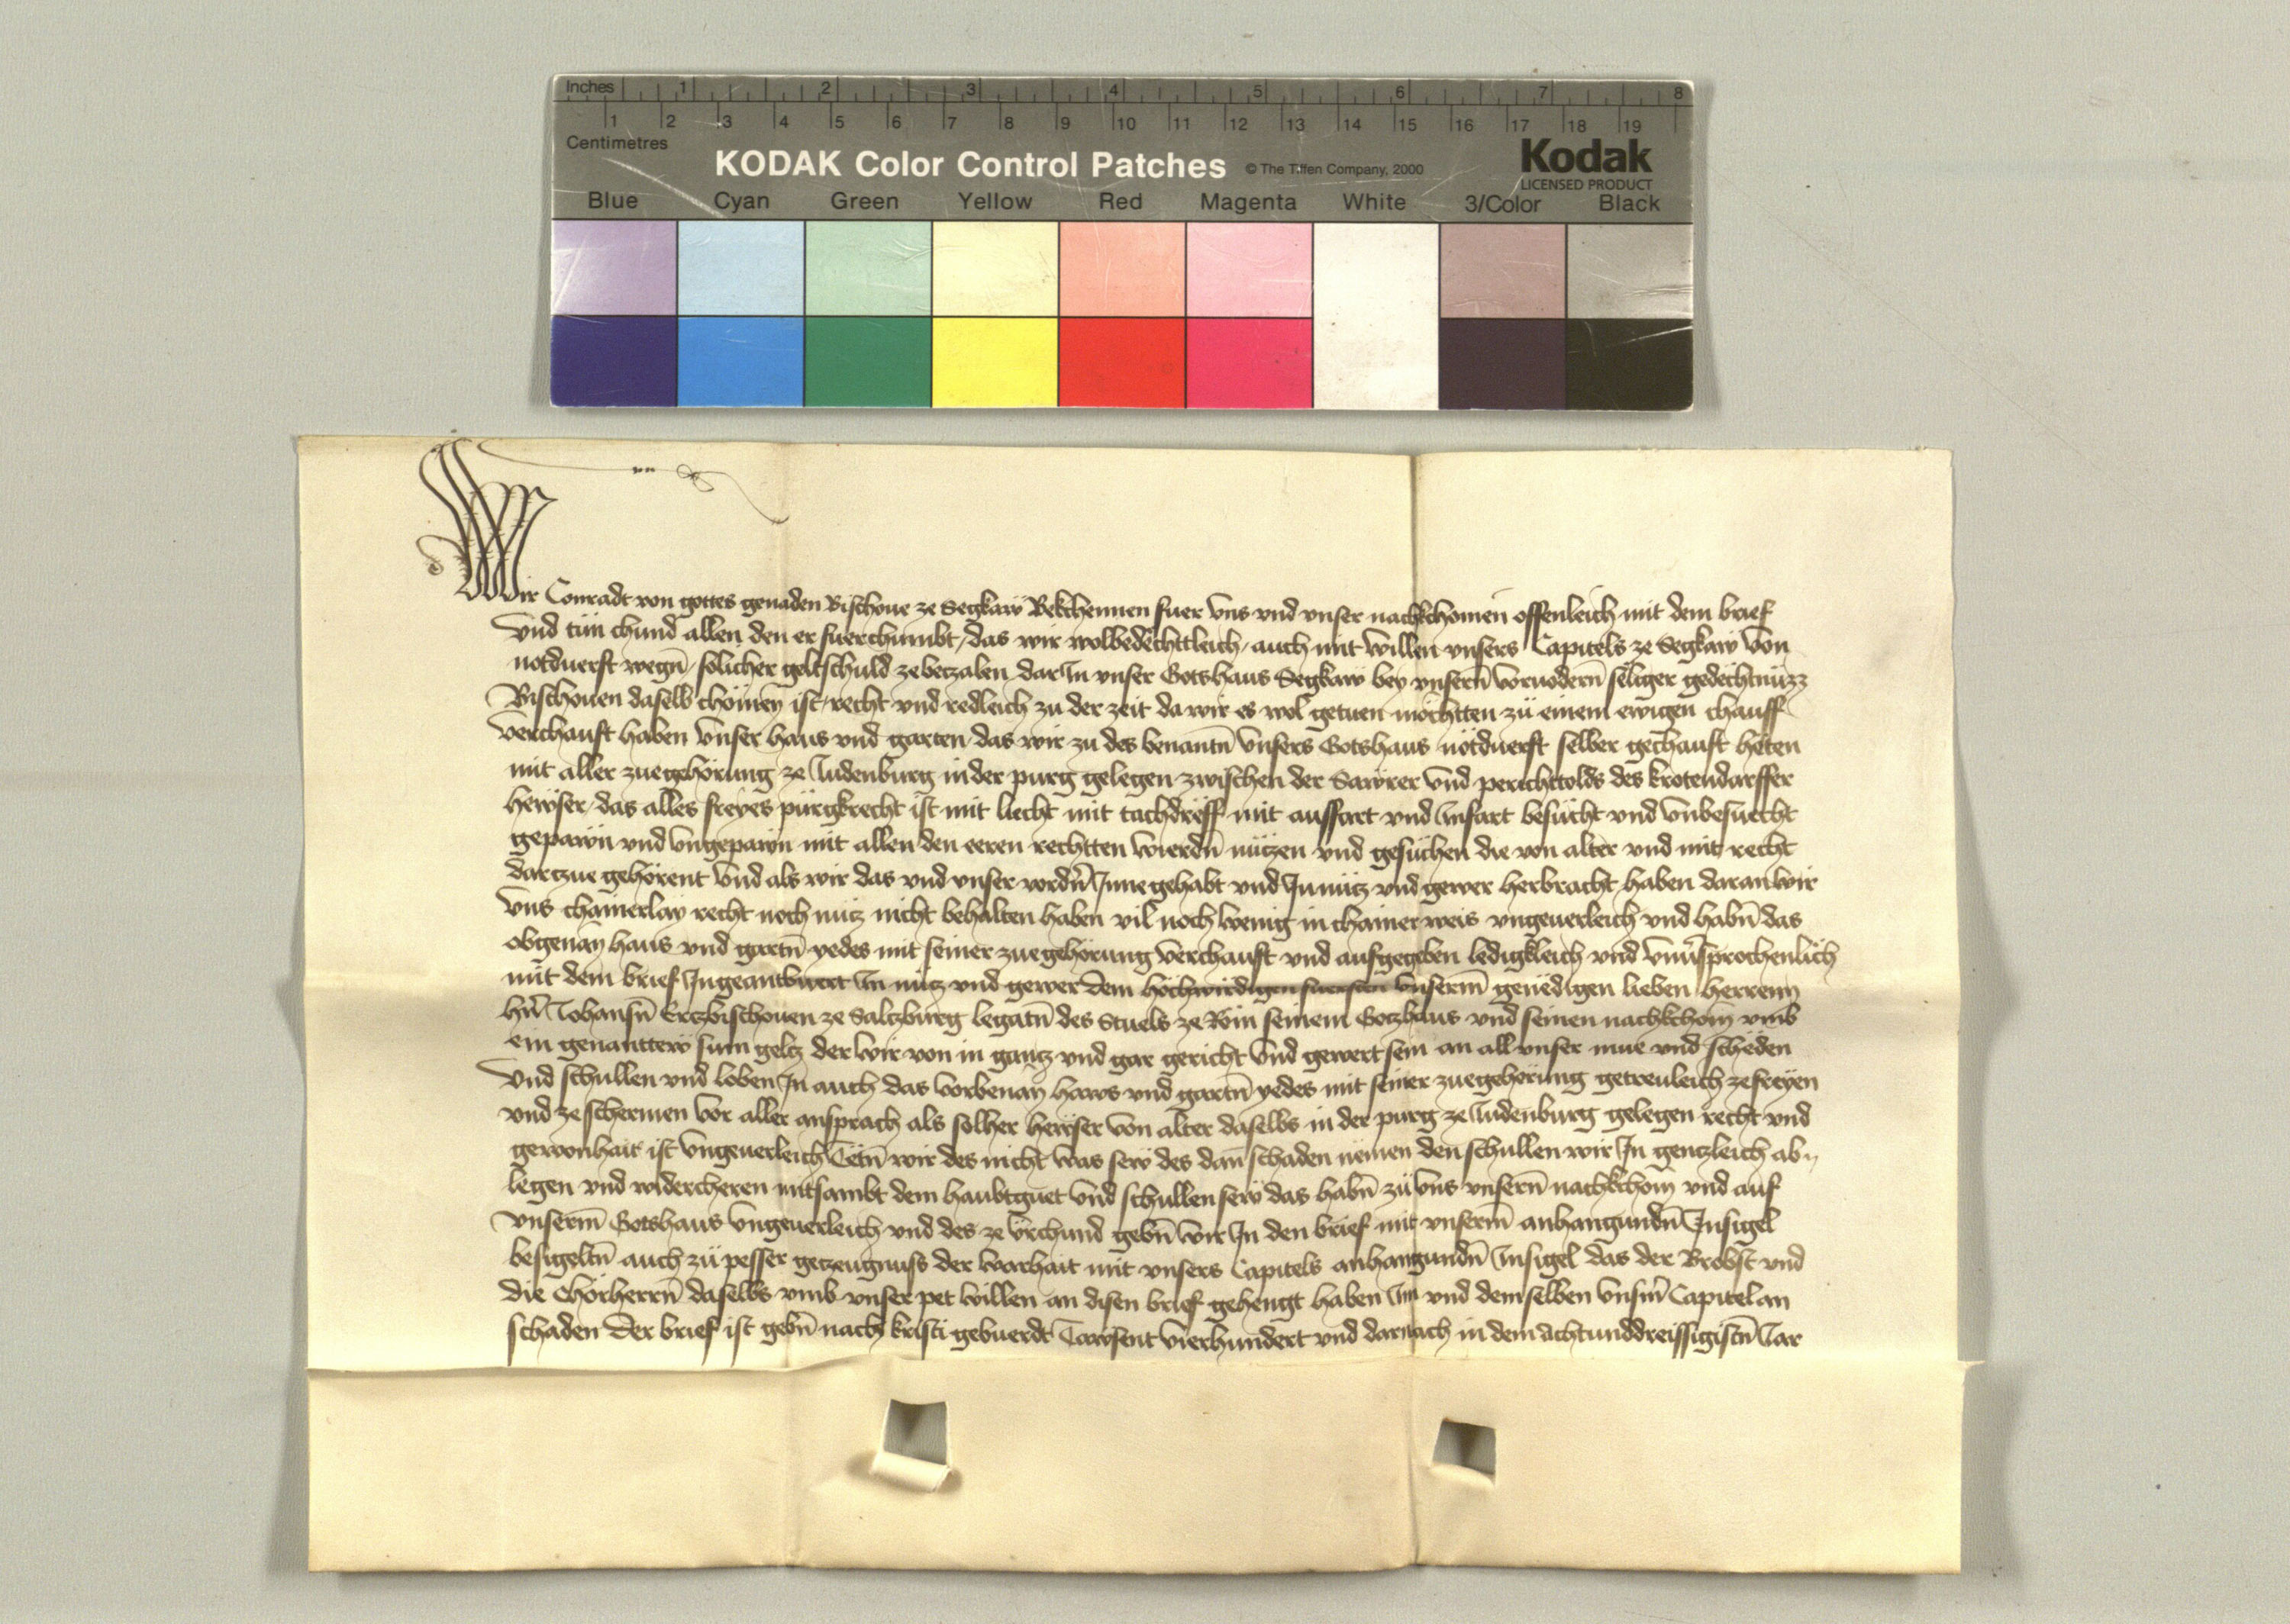 Inches 1 2 3 4 5 6 7 8
1 2 3 4 5 6 7 8 9 10 11 12 13 14 15 16 17 18 19
Centimetres
KODAK Color Control Patches © The Tiffen Company, 2000 Kodak
LICENSED PRODUCT
Blue Cyan Green Yellow Red Magenta White 3/Color Black
Wir Conradt von gottes genaden Bischoue ze Segkaw Bekchennen fuer vns vnd vnser nachkchomen offenleich mit dem brief
Vnd tün chund allen den er fuerchumbt, das wir wolbedëchttleich, auch mit willen vnsers Capitels ze Segkaw von
notduerft wegn̄ solicher geltschuld ze betzalen dar In vnser Gotshaus Segkaw bey vnsern̄ voruodern̄ sëliger gedëchtnüzz
Bischouen daselb chömen ist, recht vnd redleich zu der zeit da wir es wol getuen möchtten zü einem ewigen chauff
Verchauft haben Vnser haus vnd garten das wir zu des benantn̄ Vnsers Gotshaus nötduerft selber gechauft heten
mit aller zuegehörung ze Judenburg in der purg gelegen zwischen der Sawrer vnd perichttolds des krotendarffer
hewser, das alles freyes pürgkrecht ist mit liecht mit tachdröff mit auffart vnd Infart besücht vnd Vnbesuecht
gepawn vnd vngepawn mit allen den eeren rechtten wierdn̄ nützen vnd gesüchen die von alter vnd mit recht
dartzue gehörent Vnd als wir das vnd vnser vordn̄ Inne gehabt vnd In nütz vnd gewer herbracht haben daran wir
Vns chainerlay recht noch nütz nicht behalten haben vil noch wenig in chainer weis vngeuerleich vnd habn̄ das
obgenan̄ haus vnd gartn̄ yedes mit seiner zuegehörung Verchauft vnd aufgegeben ledigkleich vnd Vnuersprochenlich
mit dem brief Ingeantwurt In nütz vnd gewer Dem hochwirdigen fuersten Vnserm̄ genëdigen lieben herrenn
hn̄ Johansn̄ Ertzbischouen ze Saltzburg legatn̄ des Stuels ze Röm seinem Gotzhaus vnd seinen nachkchom̄ vmb
ein genanttew sum geltz der wir von in gantz vnd gar gericht Vnd gewert sein an all vnser mue vnd schëden
Vnd schullen vnd loben In auch das Vorbenan̄ haws vnd gartn̄ yedes mit seiner zuegehörung getreuleich ze freyen
vnd ze schermen Vor aller ansprach als solher hewser Von alter daselbs in der purg ze Judenburg gelegen recht vnd
gewonhait ist Vngeuerleich Tëtn̄ wir des nicht was sew des dan̄ schaden nëmen den schullen wir In gentzleich ab
legen vnd widercheren mitsambt dem haubtguet Vnd schullen sew das habn̄ zü Vns vnsern̄ nachkchom̄ vnd auf
Vnserm̄ Gotshaus Vngeuerleich vnd des ze Vrchund gebn̄ wir In den brief mit vnserm̄ anhangundn̄ Insigel
besigeltn̄ auch zü pesser getzeugnuss der warhait mit vnsers Capitels anhangundn̄ Insigel das der Brobst vnd
die Chörherrn̄ daselbs vmb vnser pet willen an disen brief gehengt haben Im vnd demselben Vnsm̄ Capitel an
schaden Der brief ist gebn̄ nach kristi gebuerdt Tawsent vierhundert vnd darnach in dem achtunddreissigistn̄ Jar